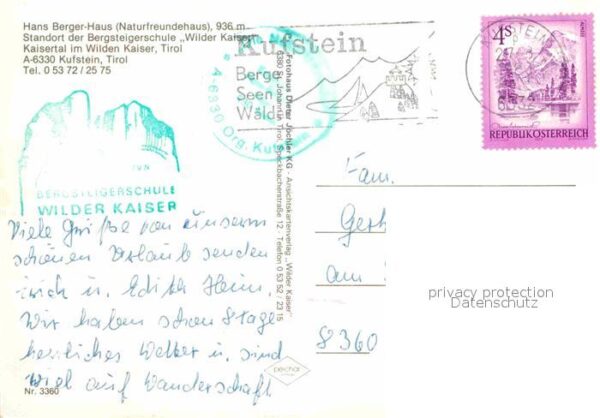 Hans Berger-Haus (Naturfreundehaus), 936 m
Standort der Bergsteigerschule „Wilder Kaiser"
Kaisertal im Wilden Kaiser, Tirol
A-6330 Kufstein, Tirol
Tel. 0 53 72 / 25 75
BERGSTEIGERSCHULE
WILDER KAISER
Viele Grüße von unserm
schönen Urlaub senden
u. Edith Heim.
Wir haben schon 8 Tage
herrliches Wetter u. sind
viel auf Wanderschaft
Nr. 3360
Kufstein
Berge
Seen
Wälder
A 6330 Org. Kufstein
Fotohaus Dieter Jöchler KG - Ansichtskartenverlag „Wilder Kaiser"
6380 St. Johann in Tirol, Speckbacherstraße 12 - Telefon 0 53 52 / 23 15
pechar
4S
REPUBLIK ÖSTERREICH
KUFSTEIN
Fam.
am
8360
privacy protection
Datenschutz